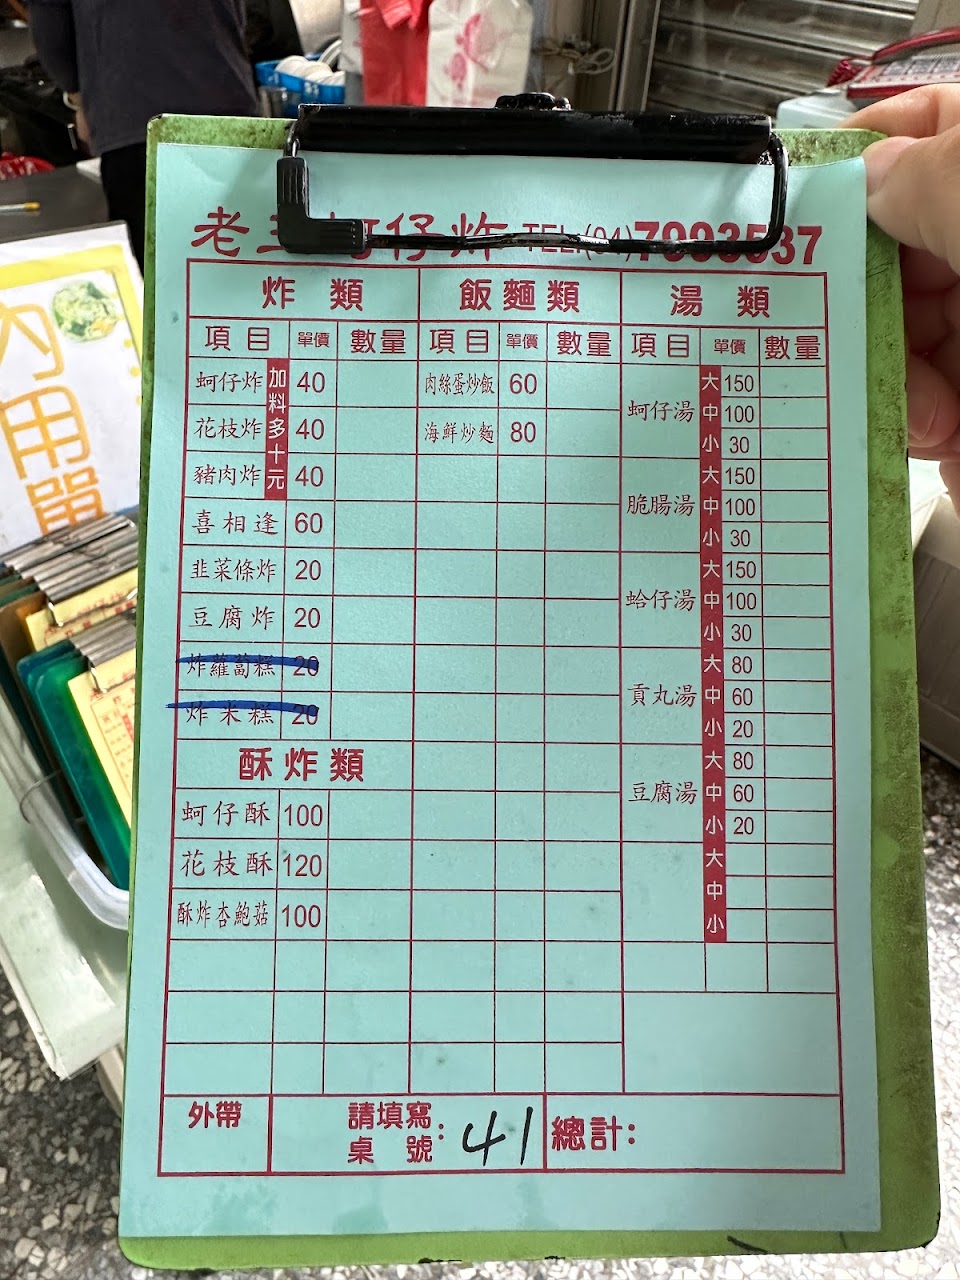 老三蚵仔炸 TEL:(04)7993537
炸類 飯麵類 湯類
項目 單價 數量 項目 單價 數量 項目 單價 數量
加料多十元
蚵仔炸 40
花枝炸 40
豬肉炸 40
喜相逢 60
韭菜條炸 20
豆腐炸 20
炸蘿蔔糕 20
炸米糕 20
酥炸類
蚵仔酥 100
花枝酥 120
酥炸杏鮑菇 100
肉絲蛋炒飯 60
海鮮炒麵 80
蚵仔湯 大 150
中 100
小 30
脆腸湯 大 150
中 100
小 30
蛤仔湯 大 150
中 100
小 30
貢丸湯 大 80
中 60
小 20
豆腐湯 大 80
中 60
小 20
大
中
小
外帶 請填寫桌號: 41 總計:
內用單